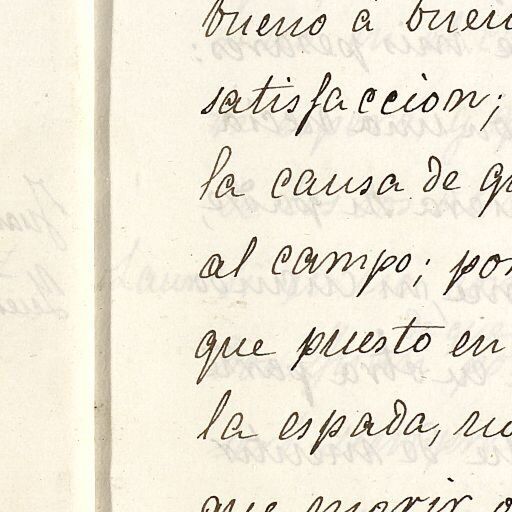 bueno á buen
satisfaccion;
la causa de
al campo; por
que puesto en
la espada,
que morir